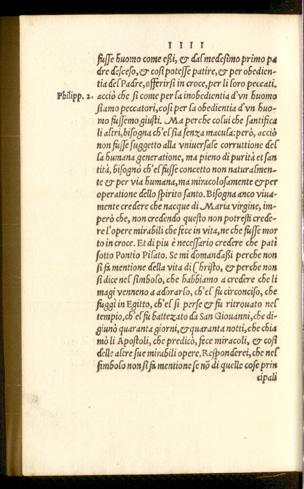 IIII
fusse huomo come eßi, & dal medesimo primo pa
dre desceso, & così potesse patire, & per obedien-
tia del Padre, offerirsi in croce, per li loro peccati,
Philipp. 2. acciò che si come per la inobedientia d'vn huomo
siamo peccatori, così per la obedientia d'vn huo-
mo fussemo giusti. Ma perche colui che santifica
li altri, bisogna ch'el sia senza macula: però, acciò
non fusse suggetto alla vniuersale corruttione del
la humana generatione, ma pieno di purità et san
tità, bisognò ch'el fusse concetto non naturalmen-
te & per via humana, ma miracolosamente & per
operatione dello spirito santo. Bisogna anco viua-
mente credere che nacque di Maria virgine, im-
però che, non credendo questo non potresti crede-
re l'opere mirabili che fece in vita, ne che fusse mor
to in croce. Et di piu é necessario credere che patì
sotto Pontio Pilato. Se mi domandaßi perche non
si fà mentione della vita di Christo, & perche non
si dice nel simbolo, che habbiamo a credere che li
magi venneno a adorarlo, ch'el fu circonciso, che
fuggì in Egitto, ch'el si perse & fu ritrouato nel
tempio, ch'el fu battezato da San Giouanni, che di-
giunò quaranta giorni, & quaranta notti, che chia
mò li Apostoli, che predicò, fece miracoli, & così
delle altre sue mirabili opere. Responderei, che nel
simbolo non si fà mentione se nõ di quelle cose prin
cipali